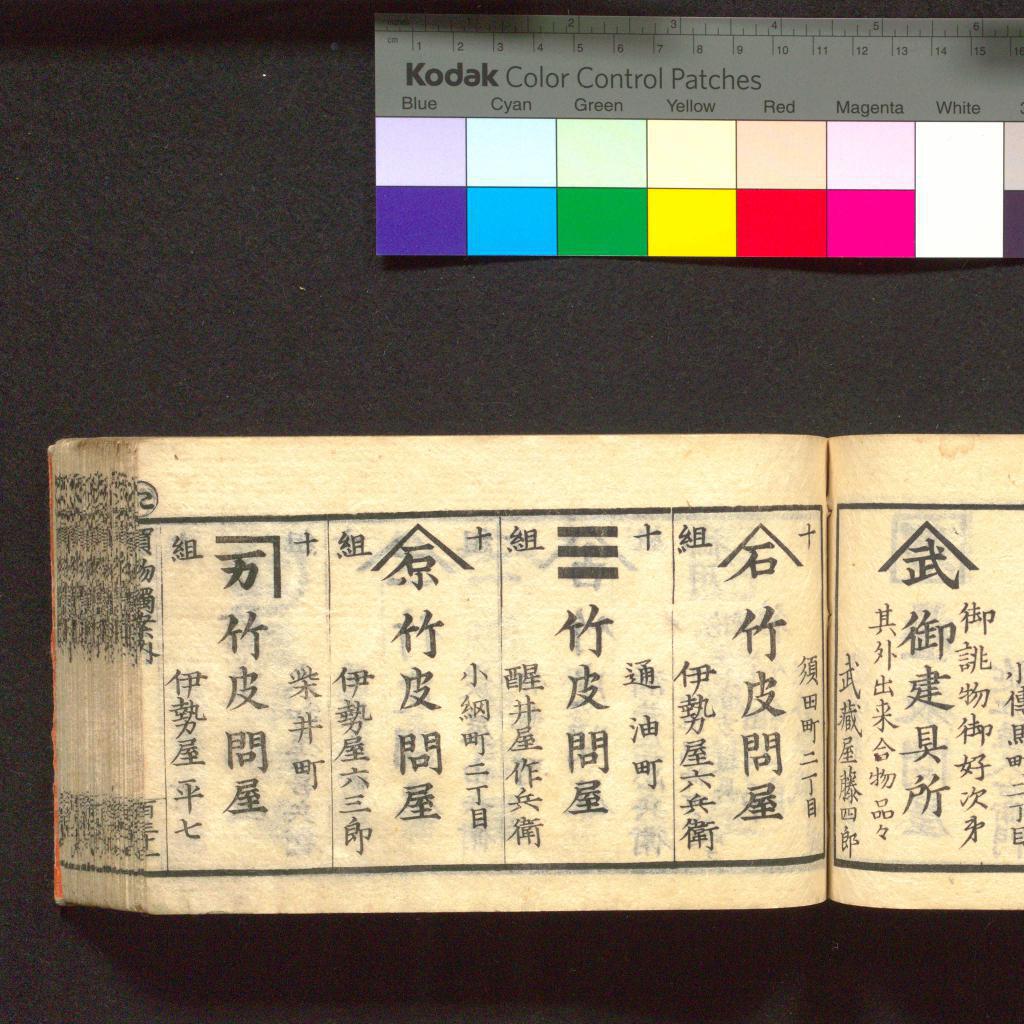 inches 1 2 3 4 5 6
cm 1 2 3 4 5 6 7 8 9 10 11 12 13 14 15
Kodak Color Control Patches
Blue Cyan Green Yellow Red Magenta White
小傳馬町二丁目
御誂物御好次才
武 御建具所
其外出来合物品々
武蔵屋藤四郎
十 須田町二丁目
石 竹皮問屋
組 伊勢屋六兵衛
十 通油町
竹皮問屋
組 醒井屋作兵衛
十 小網町二丁目
京 竹皮問屋
組 伊勢屋六三郎
十 柴井町
万 竹皮問屋
組 伊勢屋平七
買物獨案内